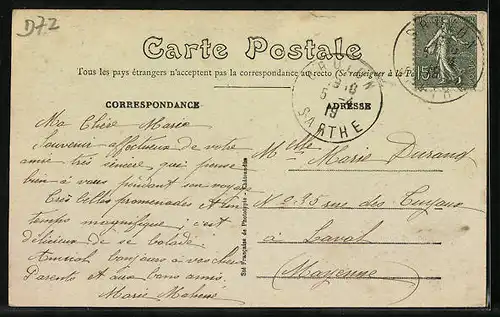 D72
Carte Postale
Tous les pays étrangers n'acceptent pas la correspondance au recto (Se renseigner à la Po
CORRESPONDANCE
ADRESSE
SARTHE
15
Ma Chère Marie
Souvenir affectueux de votre
amie très sincère qui pense
bien à vous pendant son voyage
Très belles promenades et un
temps magnifique, c'est
délicieux de se balade
Amical bonjours à vos chers
Parents et aux bons amis
Marie
Sté Française de Phototypie - Châteaudun
Mlle Marie Durand
No 235 rue des
à Laval
(Mayenne)